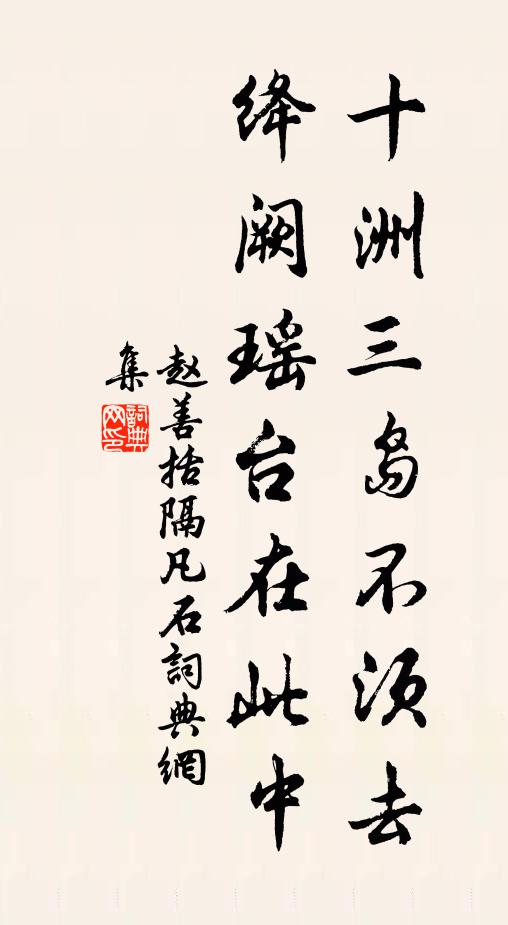 十洲三岛不须去
绛阙瑶台在此中
赵善括隔凡石詞典網
集
詞典网印